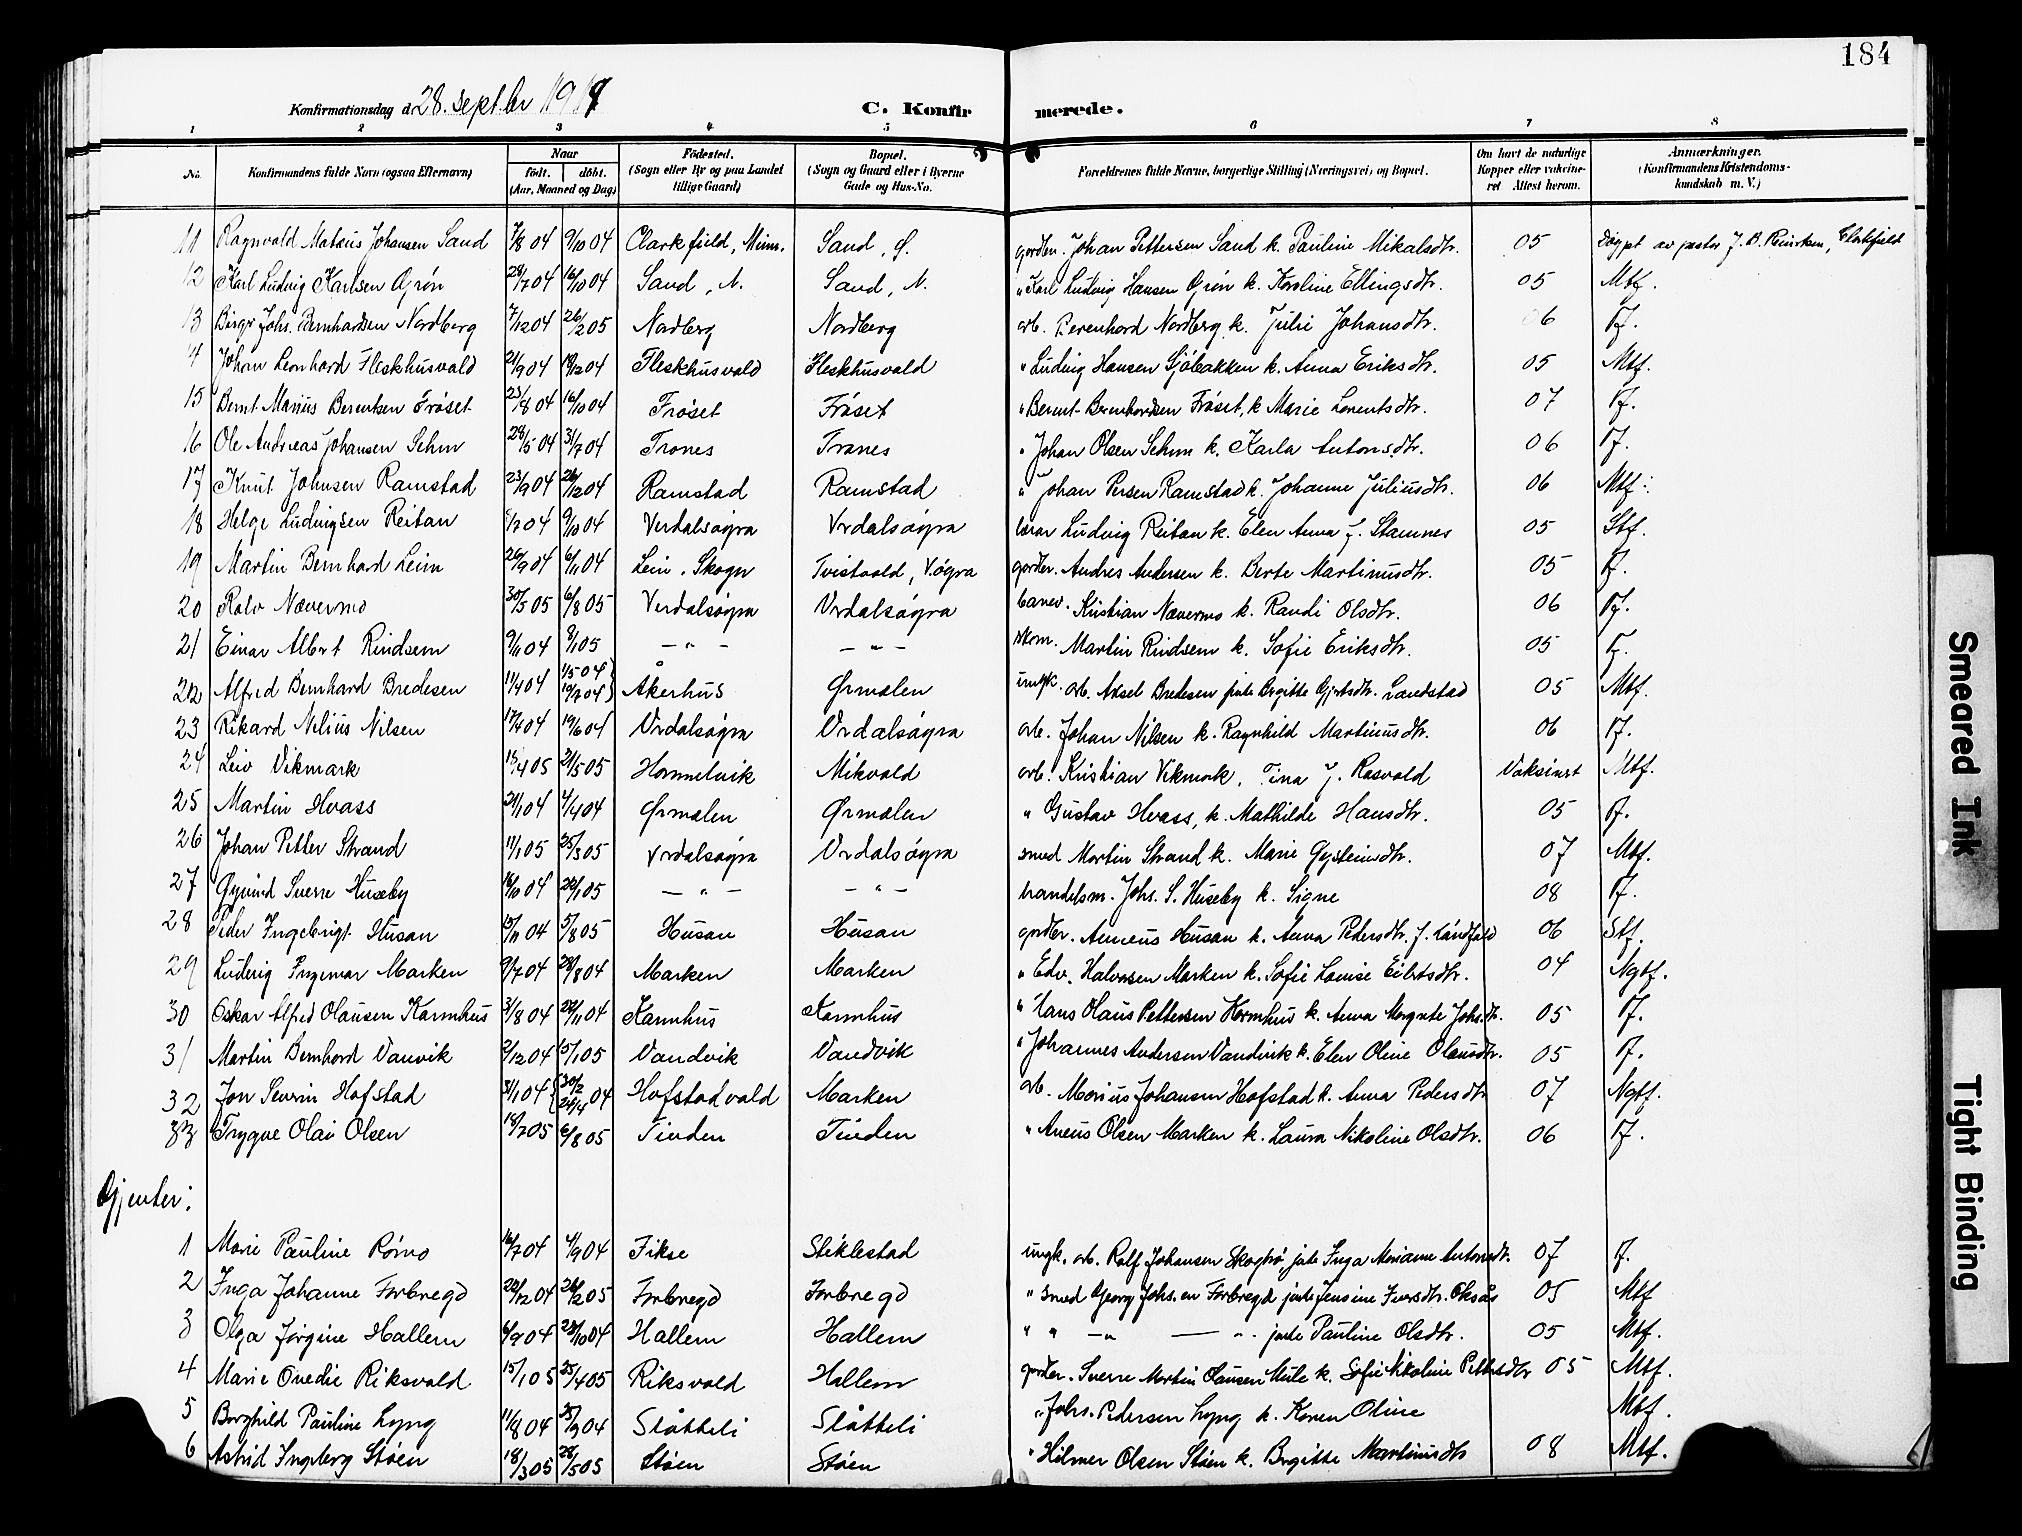 184
Konfirmationsdag d. 28. septbr 1919
C. Konfirmerede.
1 2 3 4 5 6 7 8
No. Konfirmandens fulde Navn (ogsaa Efternavn) Naar født. døbt. (Aar, Maaned og Dag) Fødested. (Sogn eller By og paa Landet tillige Gaard) Bopæl. (Sogn og Gaard eller i Byerne Gade og Hus-No. Forældrenes fulde Navne, borgerlige Stilling (Næringsvei) og Bopæl. Om havt de naturlige Kopper eller vakcineret Attest herom. Anmærkninger. (Konfirmandens Kristendomskundskab m. V.)
11 Ragnvald Mateus Johansen Sand 7/8 04 9/10 04 Clarkfield, Minn. Sand, Ø. garder. Johan Pettersen Sand k. Pauline Mikalsdtr. 05 Døypt av pastor J. B.
12 Karl Ludvig Karlsen Grön 28/7 04 16/10 04 Sand, N. Sand, N. " Karl Ludvig Hansen Grön k. Karoline Ellingsdtr. 05 Mtf.
13 Birger Johs. Bernhardsen Nordberg 7/12 04 26/2 05 Nordberg Nordberg arb. Berenhard Nordberg k. Julie Johansdtr. 06 Tf.
4 Johan Leonhard Fleskhusvald 21/9 04 19/12 04 Fleskhusvald Fleskhusvald " Ludvig Hansen Sjöbakken k. Anna Eriksdtr. 05 Mtf.
15 Bernt Marius Berentsen Fröset 23/8 04 16/10 04 Fröset Fröset " Berent Bernhardsen Fröset, k. Marie Lorentsdtr. 07 Tf.
16 Ole Andreas Johansen Sehm 28/5 04 31/7 04 Trones Trones " Johan Olsen Sehm k. Karla Antonsdtr. 06 Tf.
17 Knut Johnsen Ramstad 23/9 04 26/12 04 Ramstad Ramstad " Johan Persen Ramstad k. Johanne Juliusdtr. 06 Mtf.
18 Helge Ludvigsen Reitan /7 04 9/10 04 Verdalsøgra Verdalsøgra lærar Ludvig Reitan k. Elen Anna f. Stamnes 05 Stf.
19 Martin Bernhard Leim 26/9 04 6/11 04 Leim, Skogn Tvistvold, V.øgra garder. Andres Andersen k. Berte Martinusdtr. 05 Tf.
20 Rolv Nævermo 30/5 05 6/8 05 Verdalsøgra Verdalsøgra banev. Kristian Nævermo k. Randi Olsdtr. 06 Tf.
21 Einar Albert Rindsem 9/11 04 8/1 05 — " — — " — skom. Martin Rindsem k. Sofie Eriksdtr. 05 Tf.
22 Alfred Bernhard Bredesen 11/4 04 1/5 04 19/7 04 Akerhus Ørmælen ungk. arb. Aksel Bredesen pike Birgitte Gjertsdtr. Landstad 05 Mtf.
23 Rikard Nilius Nilsen 17/4 04 19/6 04 Verdalsøgra Verdalsøgra arb. Johan Nilsen k. Ragnhild Martinusdtr. 06 Tf.
24 Leiv Vikmark 15/4 05 21/5 05 Hommelvik Mikvold arb. Kristian Vikmark, Tina f. Rosvold Vaksinert Mtf.
25 Martin Hvass 24/1 04 4/4 04 Ørmælen Ørmælen " Gustav Hvass, k. Mathilde Hansdtr. 05 Tf.
26 Johan Petter Strand 11/1 05 25/3 05 Verdalsøgra Verdalsøgra smed Martin Strand k. Marie Øysteinsdtr. 07 Mtf.
27 Øyvind Sverre Huseby 16/10 04 20/1 05 — " — — " — handelsm. Johs. S. Huseby k. Signe 08 Tf.
28 Peder Ingebrigt Husan 15/11 04 5/8 05 Husan Husan garder. Anneus Husan k. Anna Pedersdtr. f. Landfald 06 Stf.
29 Ludvig Ingemar Marken 9/7 04 28/8 04 Marken Marken " Edv. Halvorsen Marken k. Sofie Lovise Eilertsdtr. 04 Ngtf.
30 Oskar Alfred Olausen Karmhus 31/8 04 27/11 04 Karmhus Karmhus " Hans Olaus Pettersen Karmhus k. Anna Margrete Johs.dtr. 05 Tf.
31 Martin Bernhard Vanvik 2/12 04 15/1 05 Vandvik Vandvik " Johannes Andersen Vandvik k. Elen Oline Olausdtr. 05 Tf.
32 Jon Severin Hofstad 31/1 04 { 30/2 24/4 04 Hofstadvald Marken arb. Marius Johansen Hofstad k. Anna Pedersdtr 07 Ngtf.
33 Trygve Olav Olsen 18/7 05 6/8 05 Tinden Tinden " Aneus Olsen Marken k. Laura Nikoline Olsdtr. 06 Tf.
Gjenter:
1 Marie Pauline Römo 16/7 04 4/9 04 Fikse Stiklestad ungk. arb. Rolf Johansen Skogtrø, pike Inga Marianne Antonsdtr. 07 Tf.
2 Inga Johanne Forbregd 20/12 04 26/2 05 Forbregd Forbregd " smed Georg Johs.en Forbregd pike Jensine Iversdtr. Oksås 05 Mtf
3 Olga Jørgine Hallem 6/9 04 23/10 04 Hallem Hallem " " — " — — " . pike Pauline Olsdtr. 05 Mtf.
4 Marie Ovedie Riksvald 15/1 05 25/4 05 Riksvald Hallem garder. Sverre Martin Olausen Mele k. Sofie Nikoline Pettersdtr 05 Mtf.
5 Borghild Pauline Lyng 11/8 04 25/9 04 Slåtteli Slåtteli " Johs. Pedersen Lyng k. Karen Oline Mtf.
6 Astrid Ingeborg Stöen 18/3 05 28/5 05 Stöen Stöen " Hilmer Olsen Stöen k. Birgitte Martinusdtr 08 Mtf.
Smeared Ink
Tight Binding